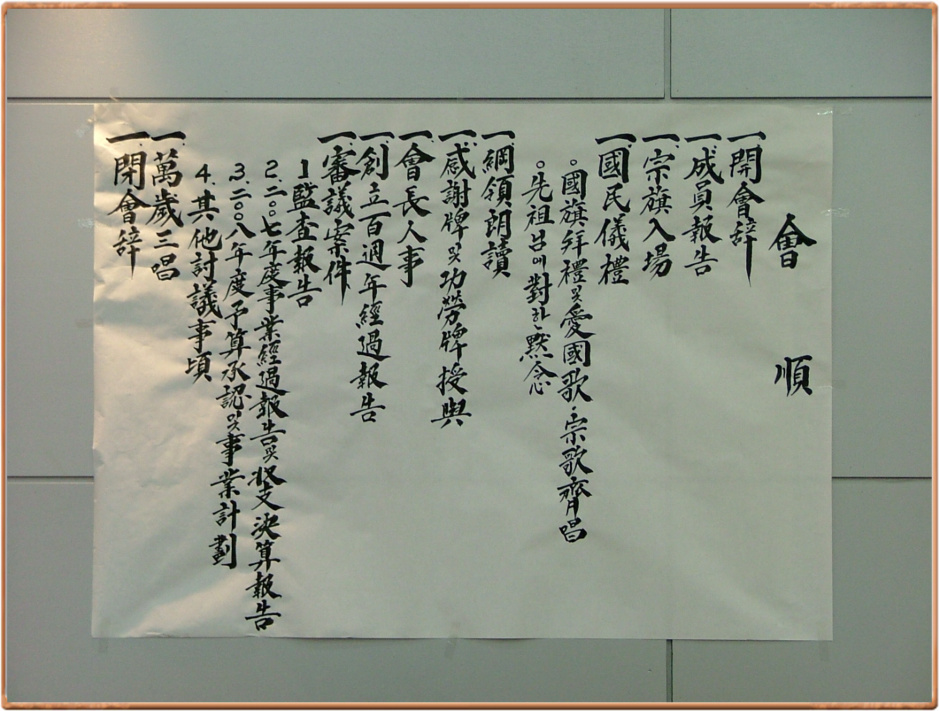 會順
一. 開會辞
一. 成員報告
一. 宗旗入場
一. 國民儀禮
○國旗拜禮 및 愛國歌·宗歌齊唱
○先祖님에 對한 默念
一. 綱領朗讀
一. 感謝牌 및 功勞牌授與
一. 會長人事
一. 創立百週年經過報告
一. 審議案件
1. 監査報告
2. 二〇〇七年度事業經過報告 및 收支決算報告
3. 二〇〇八年度予算承認 및 事業計劃
4. 其他討議事項
一. 萬歲三唱
一. 閉會辞